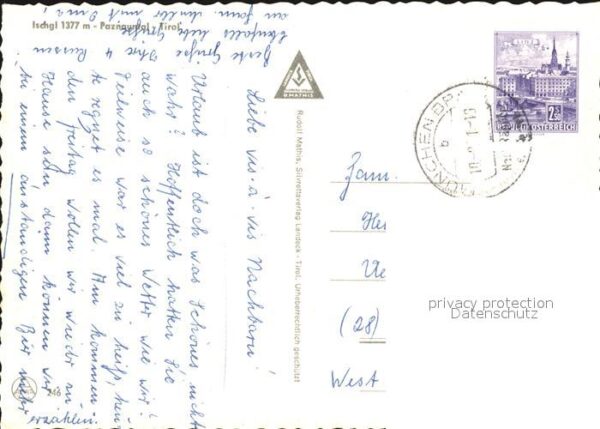 Ischgl 1377 m - Paznauntal - Tirol
Liebe vis-à-vis Nachbarn!
Urlaub ist doch was Schönes nicht
wahr? Hoffentlich hatten Sie
auch so schönes Wetter wie wir!
Teilweise war es viel zu heiß, heu
te regnet es mal. Am kommen
den Freitag wollen wir wieder zu
Hause sein dann können wir
in einem anständigen Bier mehr
erzählen.
Beste Grüße Ihre 4
Ebenfalls liebe Grüße
an Fam.
Rudolf Mathis, Silvrettaverlag Landeck - Tirol, Urheberrechtlich geschützt
MATHIS
246
2.50
REPUBLIK ÖSTERREICH
MÜNCHEN
b
Fam.
He
Ue
(28)
West
privacy protection
Datenschutz